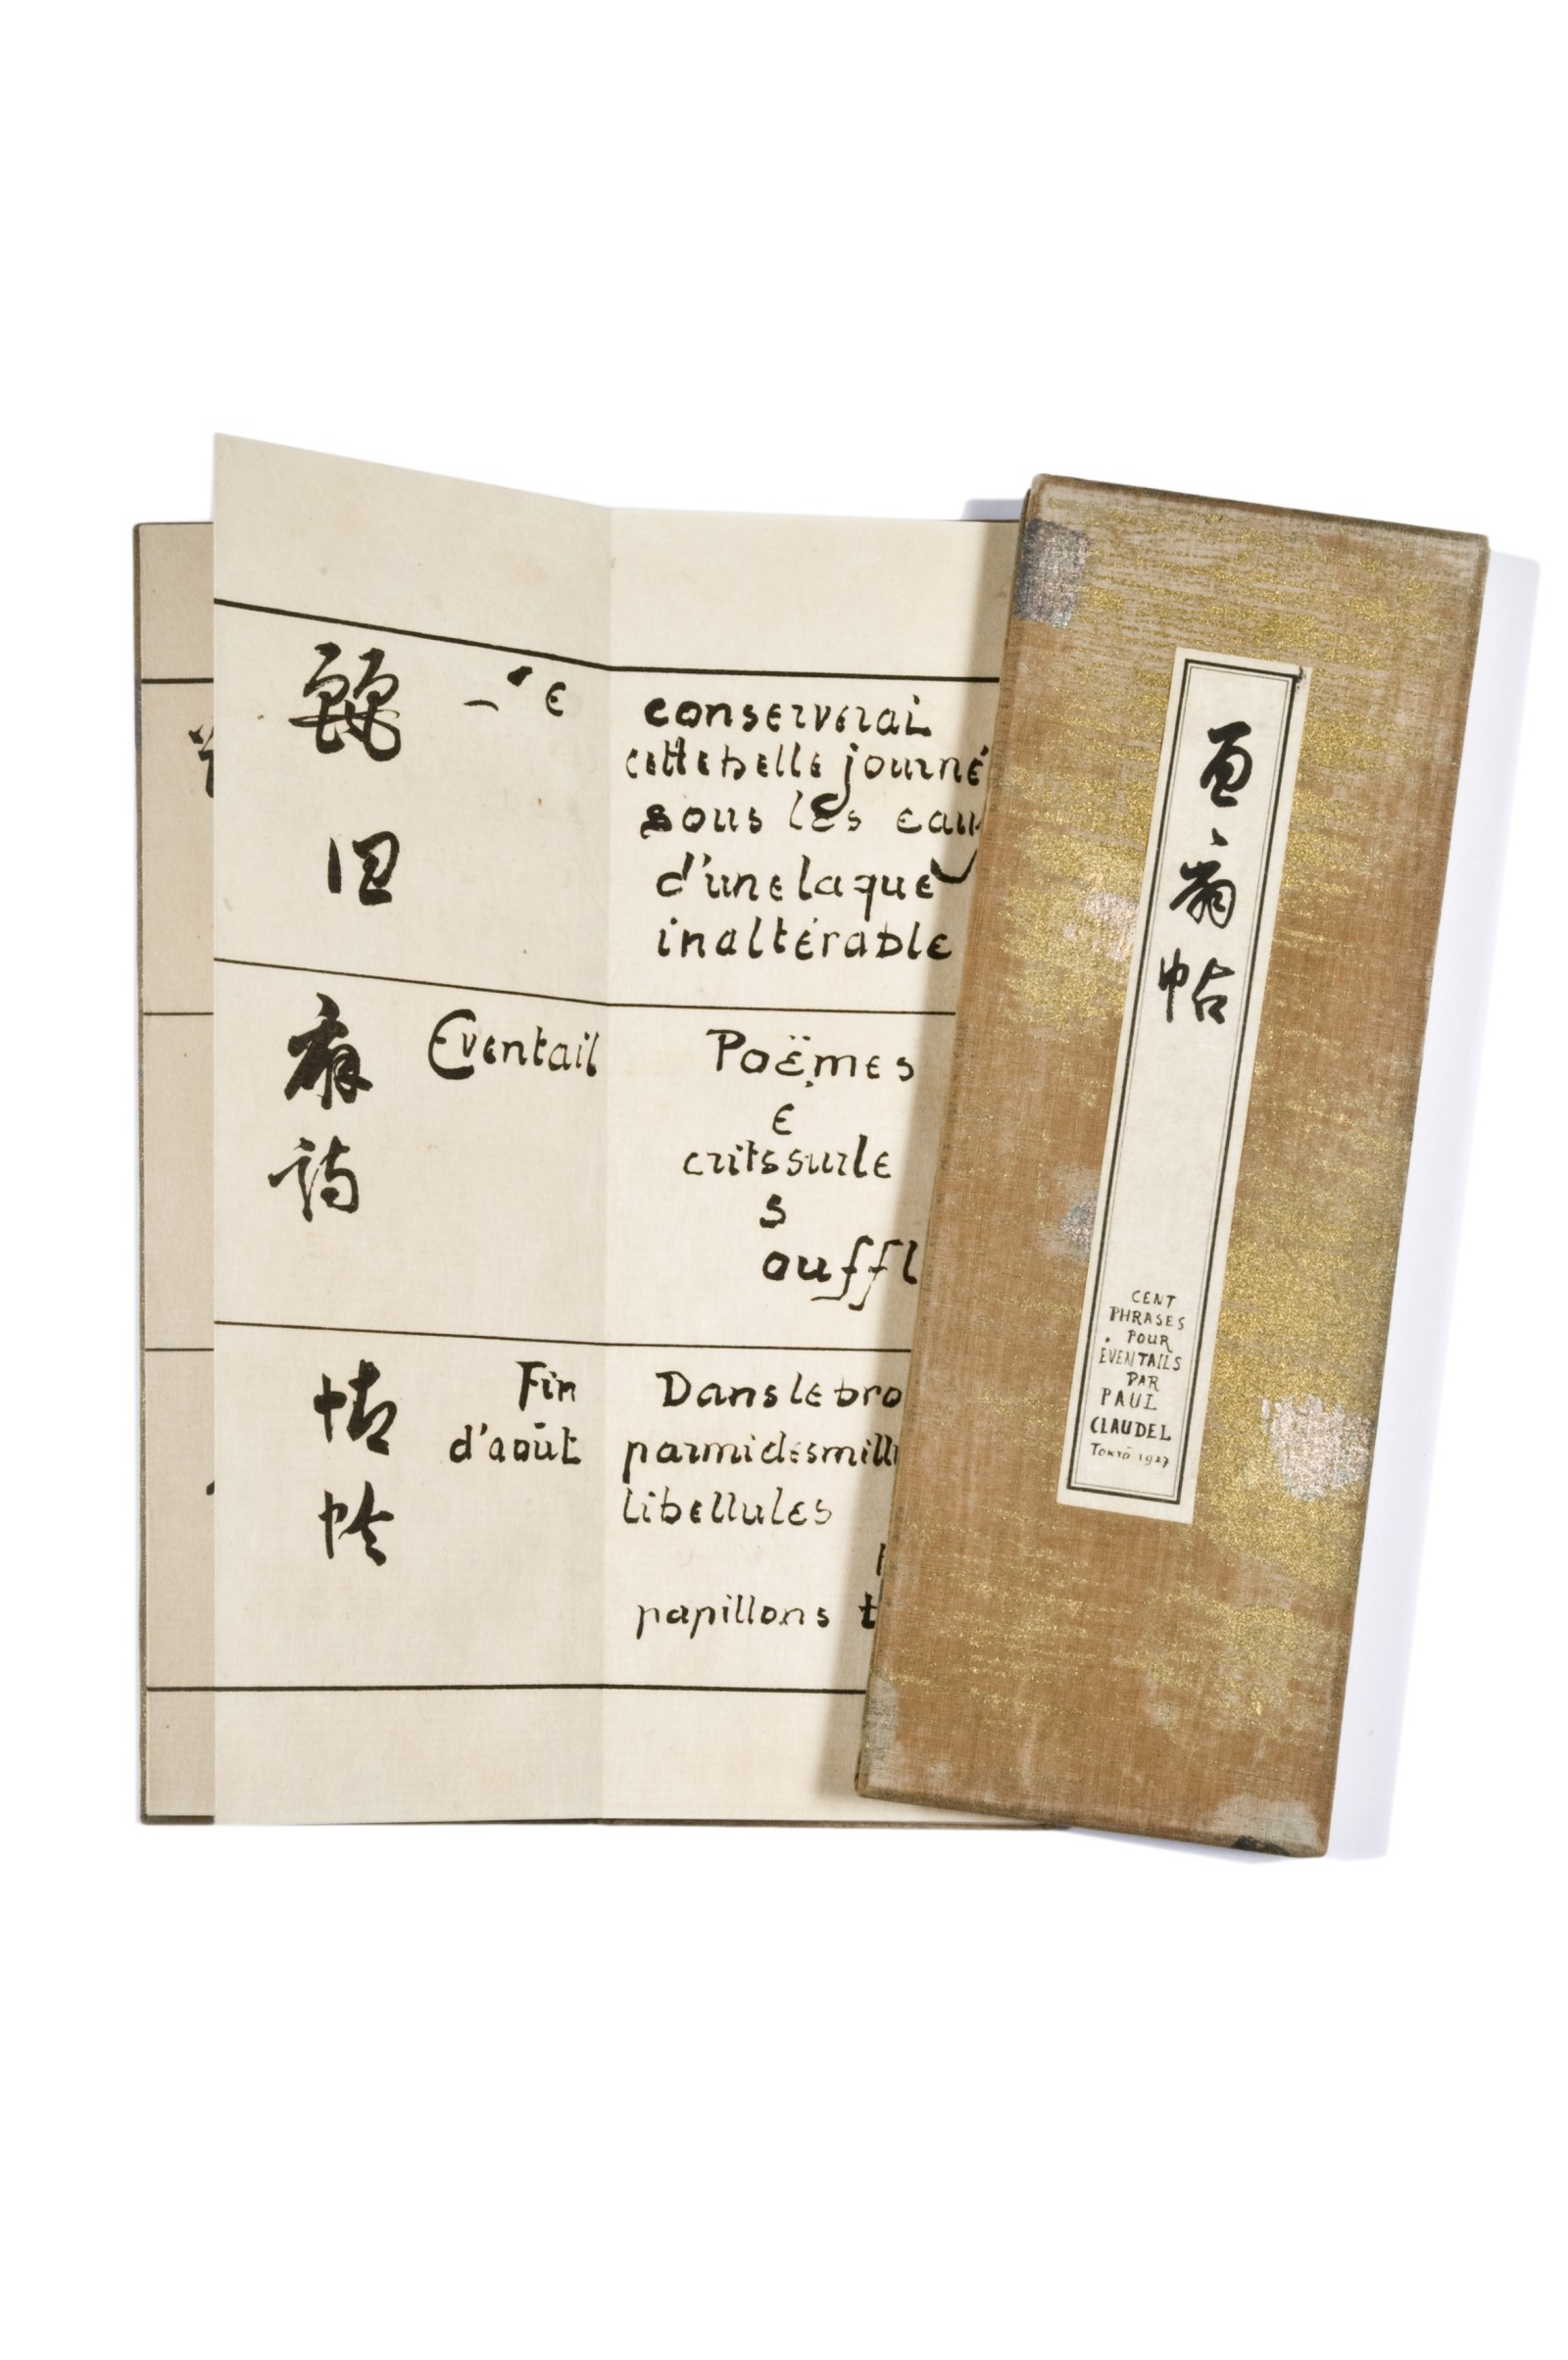 扇
詩
Eventail
蜻
蛉
Fin
d'août
conserverai
cette belle journé
sous les eau
d'une laque
inaltérable
Poëmes
e
crits sur le
s
ouffl
Dans le bro
parmi des mill
libellules
papillons t
百扇帖
CENT
PHRASES
POUR
ÉVENTAILS
PAR
PAUL
CLAUDEL
Tokyō 1927